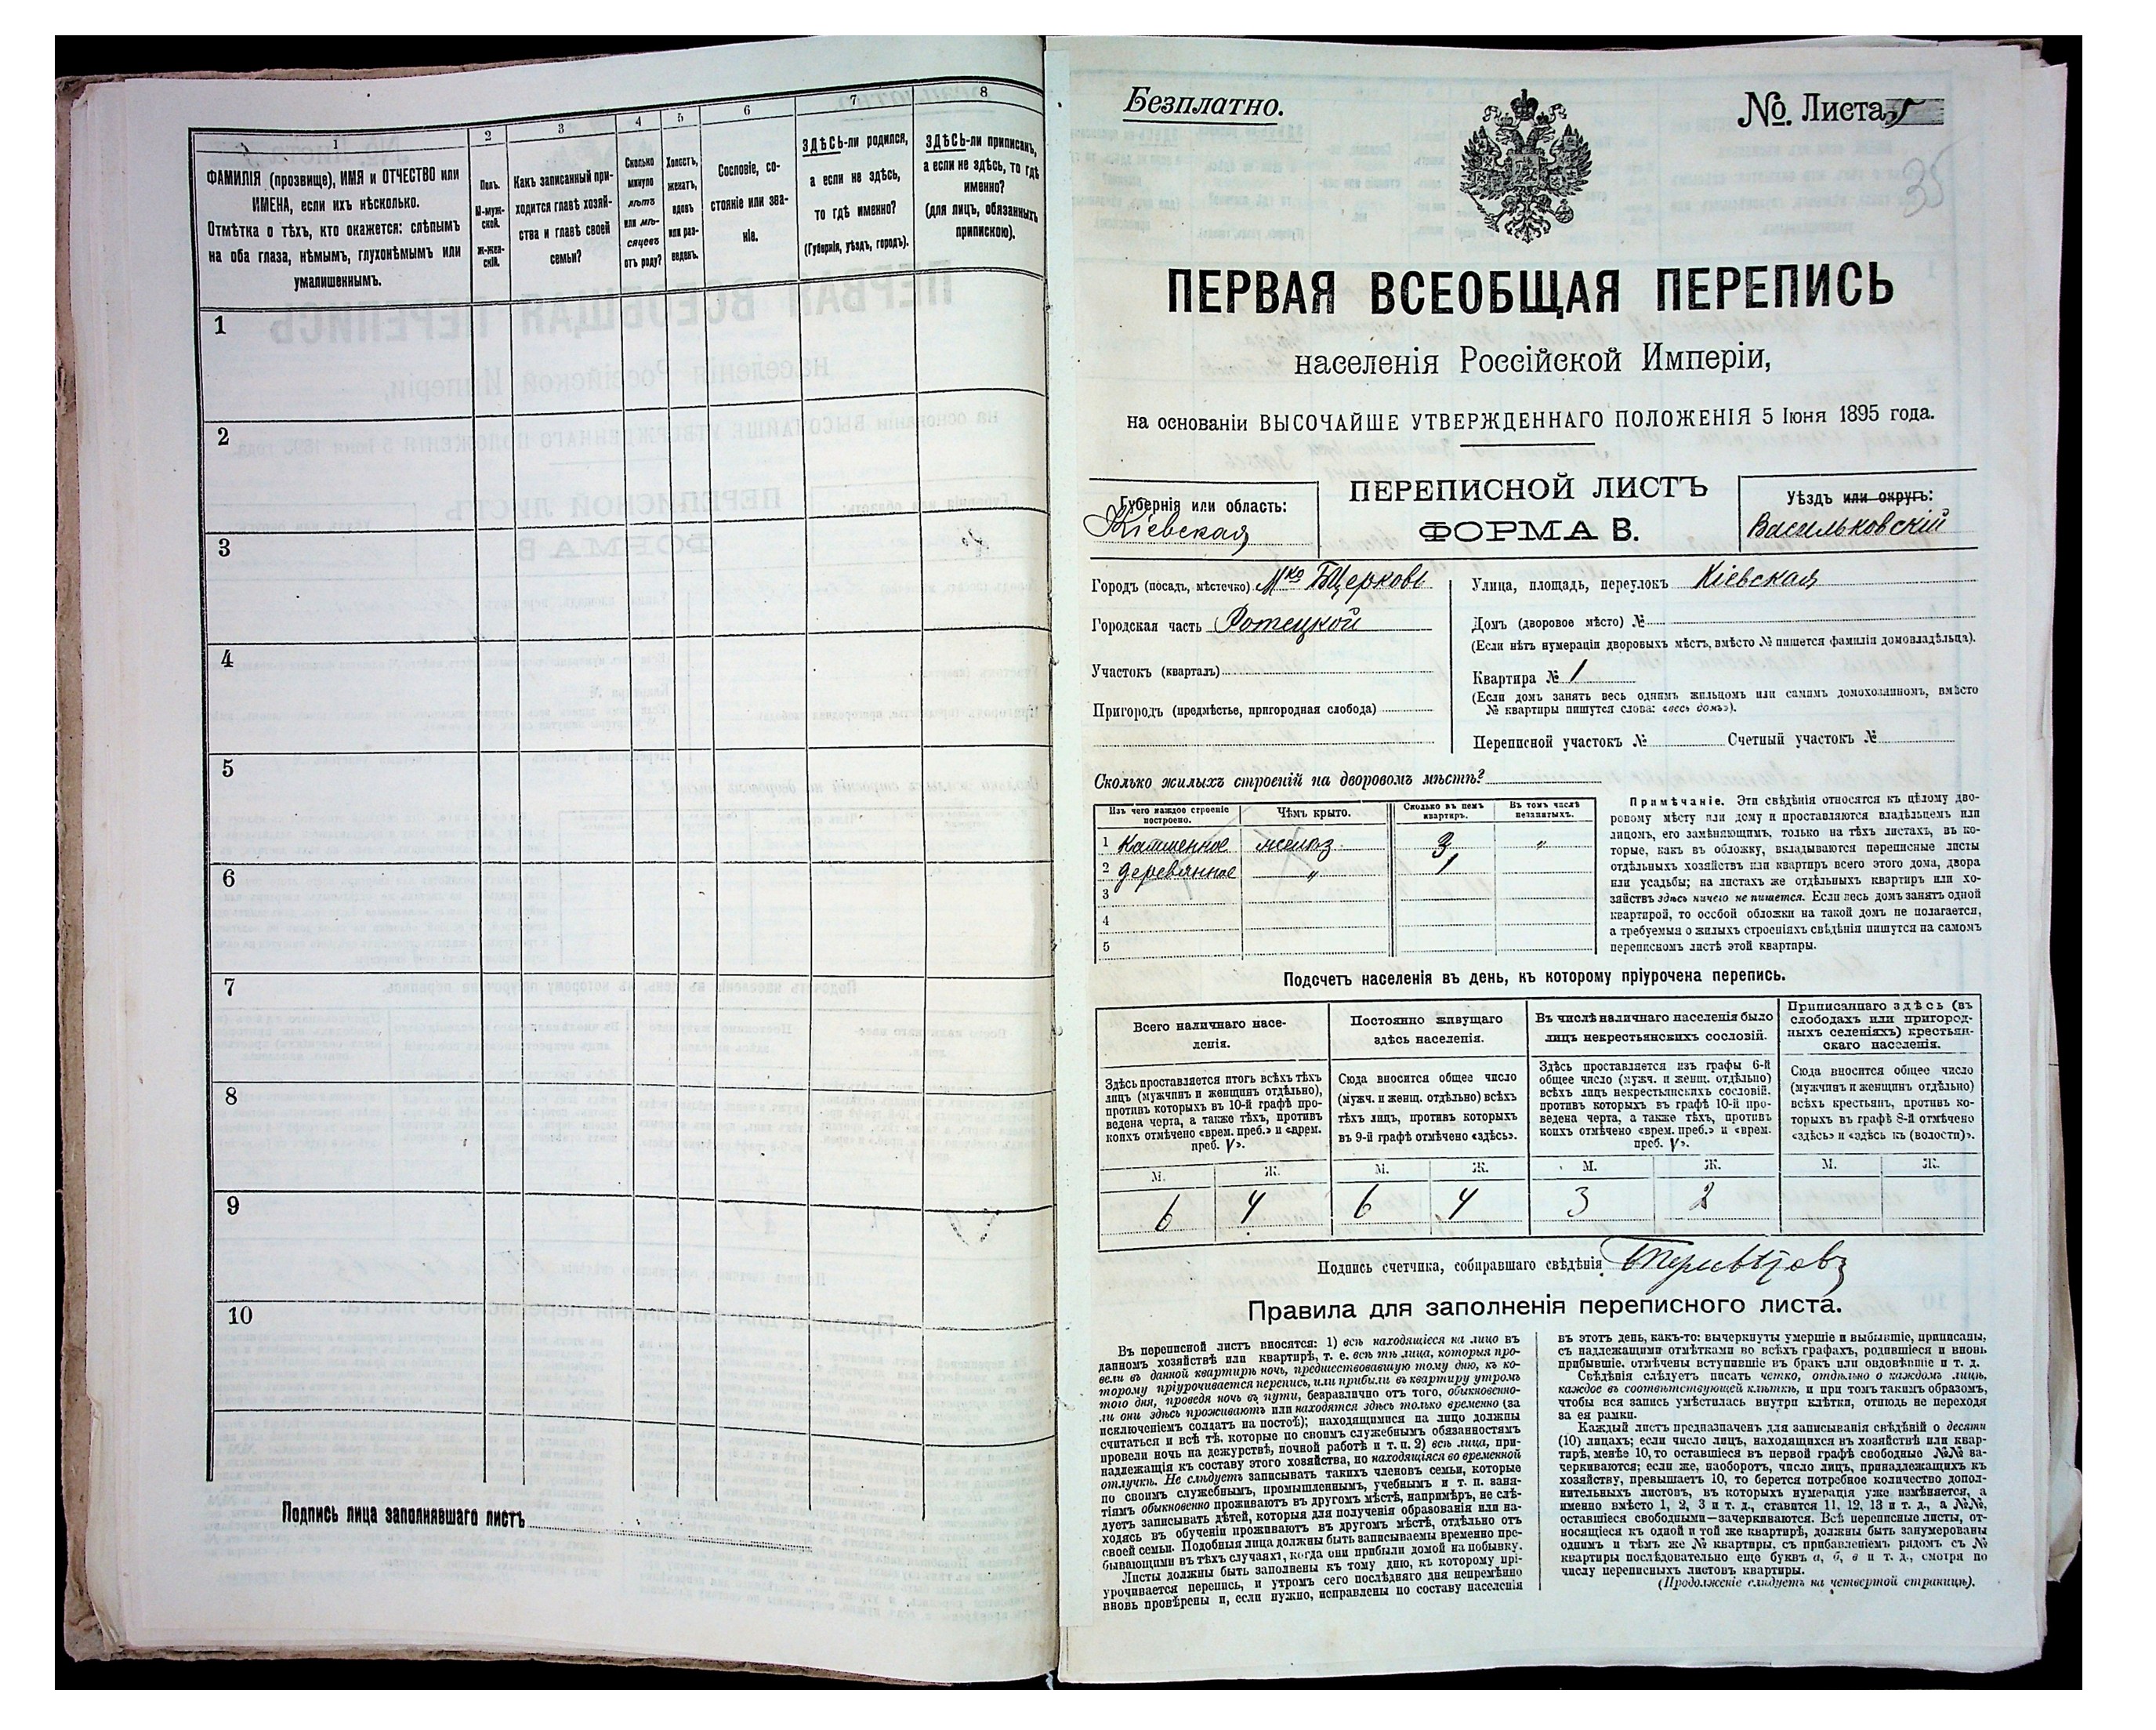 1
ФАМИЛІЯ (прозвище), ИМЯ и ОТЧЕСТВО или
ИМЕНА, если ихъ нѣсколько.
Отмѣтка о тѣхъ, кто окажется: слѣпымъ
на оба глаза, нѣмымъ, глухонѣмымъ или
умалишеннымъ.
2
Полъ.
М-муж-
ской.
Ж-жен-
скій.
3
Какъ записанный при-
ходится главѣ хозяй-
ства и главѣ своей
семьи?
4
Сколько
минуло
лѣтъ
или мѣ-
сяцевъ
отъ роду?
5
Холостъ,
женатъ,
вдовъ
или раз-
веденъ.
6
Сословіе, со-
стояніе или зва-
ніе.
7
ЗДѢСЬ-ли родился,
а если не здѣсь,
то гдѣ именно?
(Губернія, уѣздъ, городъ).
8
ЗДѢСЬ-ли приписанъ,
а если не здѣсь, то гдѣ
именно?
(для лицъ, обязанныхъ
припискою).
1
2
3
4
5
6
7
8
9
10
Подпись лица заполнявшаго листъ
Безплатно.
№ Листа 5
35
ПЕРВАЯ ВСЕОБЩАЯ ПЕРЕПИСЬ
населенія Россійской Имперіи,
на основаніи ВЫСОЧАЙШЕ УТВЕРЖДЕННАГО ПОЛОЖЕНІЯ 5 Іюня 1895 года.
Губернія или область:
Кіевская
ПЕРЕПИСНОЙ ЛИСТЪ
ФОРМА В.
Уѣздъ или округъ:
Васильковскій
Городъ (посадъ, мѣстечко) Мко БЦерковь
Городская часть Ротецкой
Участокъ (кварталъ)
Пригородъ (предмѣстье, пригородная слобода)
Улица, площадь, переулокъ Кіевская
Домъ (дворовое мѣсто) №
(Если нѣтъ нумераціи дворовыхъ мѣстъ, вмѣсто № пишется фамилія домовладѣльца).
Квартира № 1
(Если домъ занятъ весь однимъ жильцомъ или самимъ домохозяиномъ, вмѣсто
№ квартиры пишутся слова: «весь домъ»).
Переписной участокъ № Счетный участокъ №
Сколько жилыхъ строеній на дворовомъ мѣстѣ?
Изъ чего каждое строеніе
построено.
Чѣмъ крыто.
Сколько въ немъ
квартиръ.
Въ томъ числѣ
незанятыхъ.
1 Каменное желѣз. 3 "
2 деревянное " 1
3
4
5
Примѣчаніе. Эти свѣдѣнія относятся къ цѣлому дво-
ровому мѣсту или дому и проставляются владѣльцемъ или
лицомъ, его замѣняющимъ, только на тѣхъ листахъ, въ ко-
торые, какъ въ обложку, вкладываются переписные листы
отдѣльныхъ хозяйствъ или квартиръ всего этого дома, двора
или усадьбы; на листахъ же отдѣльныхъ квартиръ или хо-
зяйствъ здѣсь ничего не пишется. Если весь домъ занятъ одной
квартирой, то особой обложки на такой домъ не полагается,
а требуемыя о жилыхъ строеніяхъ свѣдѣнія пишутся на самомъ
переписномъ листѣ этой квартиры.
Подсчетъ населенія въ день, къ которому пріурочена перепись.
Всего наличнаго насе-
ленія.
Постоянно живущаго
здѣсь населенія.
Въ числѣ наличнаго населенія было
лицъ некрестьянскихъ сословій.
Приписаннаго здѣсь (въ
слободахъ или пригород-
ныхъ селеніяхъ) крестьян-
скаго населенія.
Здѣсь проставляется итогъ всѣхъ тѣхъ
лицъ (мужчинъ и женщинъ отдѣльно),
противъ которыхъ въ 10-й графѣ про-
ведена черта, а также тѣхъ, противъ
коихъ отмѣчено «врем. преб.» и «врем.
преб. V».
Сюда вносится общее число
(мужч. и женщ. отдѣльно) всѣхъ
тѣхъ лицъ, противъ которыхъ
въ 9-й графѣ отмѣчено «здѣсь».
Здѣсь проставляется изъ графы 6-й
общее число (мужч. и женщ. отдѣльно)
всѣхъ лицъ некрестьянскихъ сословій,
противъ которыхъ въ графѣ 10-й про-
ведена черта, а также тѣхъ, противъ
коихъ отмѣчено «врем. преб.» и «врем.
преб. V».
Сюда вносится общее число
(мужчинъ и женщинъ отдѣльно)
всѣхъ крестьянъ, противъ ко-
торыхъ въ графѣ 8-й отмѣчено
«здѣсь» и «здѣсь къ (волости)».
М. Ж. М. Ж. М. Ж. М. Ж.
6 4 6 4 3 2
Подпись счетчика, собиравшаго свѣдѣнія
Правила для заполненія переписного листа.
Въ переписной листъ вносятся: 1) всѣ находящіеся на лицо въ
данномъ хозяйствѣ или квартирѣ, т. е. всѣ тѣ лица, которыя про-
вели въ данной квартирѣ ночь, предшествовавшую тому дню, къ ко-
торому пріурочивается перепись, или прибыли въ квартиру утромъ
того дня, проведя ночь въ пути, безразлично отъ того, обыкновенно-
ли они здѣсь проживаютъ или находятся здѣсь только временно (за
исключеніемъ солдатъ на постоѣ); находящимися на лицо должны
считаться и всѣ тѣ, которые по своимъ служебнымъ обязанностямъ
провели ночь на дежурствѣ, ночной работѣ и т. п. 2) всѣ лица, при-
надлежащія къ составу этого хозяйства, но находящіяся во временной
отлучкѣ. Не слѣдуетъ записывать такихъ членовъ семьи, которые
по своимъ служебнымъ, промышленнымъ, учебнымъ и т. п. заня-
тіямъ обыкновенно проживаютъ въ другомъ мѣстѣ, напримѣръ, не слѣ-
дуетъ записывать дѣтей, которыя для полученія образованія или на-
ходясь въ обученіи проживаютъ въ другомъ мѣстѣ, отдѣльно отъ
своей семьи. Подобныя лица должны быть записываемы временно пре-
бывающими въ тѣхъ случаяхъ, когда они прибыли домой на побывку.
Листы должны быть заполнены къ тому дню, къ которому прі-
урочивается перепись, и утромъ сего послѣдняго дня непремѣнно
вновь провѣрены и, если нужно, исправлены по составу населенія
въ этотъ день, какъ-то: вычеркнуты умершіе и выбывшіе, приписаны,
съ надлежащими отмѣтками во всѣхъ графахъ, родившіеся и вновь
прибывшіе, отмѣчены вступившіе въ бракъ или овдовѣвшіе и т. д.
Свѣдѣнія слѣдуетъ писать четко, отдѣльно о каждомъ лицѣ,
каждое въ соотвѣтствующей клѣткѣ, и при томъ такимъ образомъ,
чтобы вся запись умѣстилась внутри клѣтки, отнюдь не переходя
за ея рамки.
Каждый листъ предназначенъ для записыванія свѣдѣній о десяти
(10) лицахъ; если число лицъ, находящихся въ хозяйствѣ или квар-
тирѣ, менѣе 10, то оставшіеся въ первой графѣ свободные №№ за-
черкиваются; если же, наоборотъ, число лицъ, принадлежащихъ къ
хозяйству, превышаетъ 10, то берется потребное количество допол-
нительныхъ листовъ, въ которыхъ нумерація уже измѣняется, а
именно вмѣсто 1, 2, 3 и т. д., ставится 11, 12, 13 и т. д., а №№,
оставшіеся свободными—зачеркиваются. Всѣ переписные листы, от-
носящіеся къ одной и той же квартирѣ, должны быть занумерованы
однимъ и тѣмъ же № квартиры, съ прибавленіемъ рядомъ съ №
квартиры послѣдовательно еще буквъ а, б, в и т. д., смотря по
числу переписныхъ листовъ квартиры.
(Продолженіе слѣдуетъ на четвертой страницѣ).